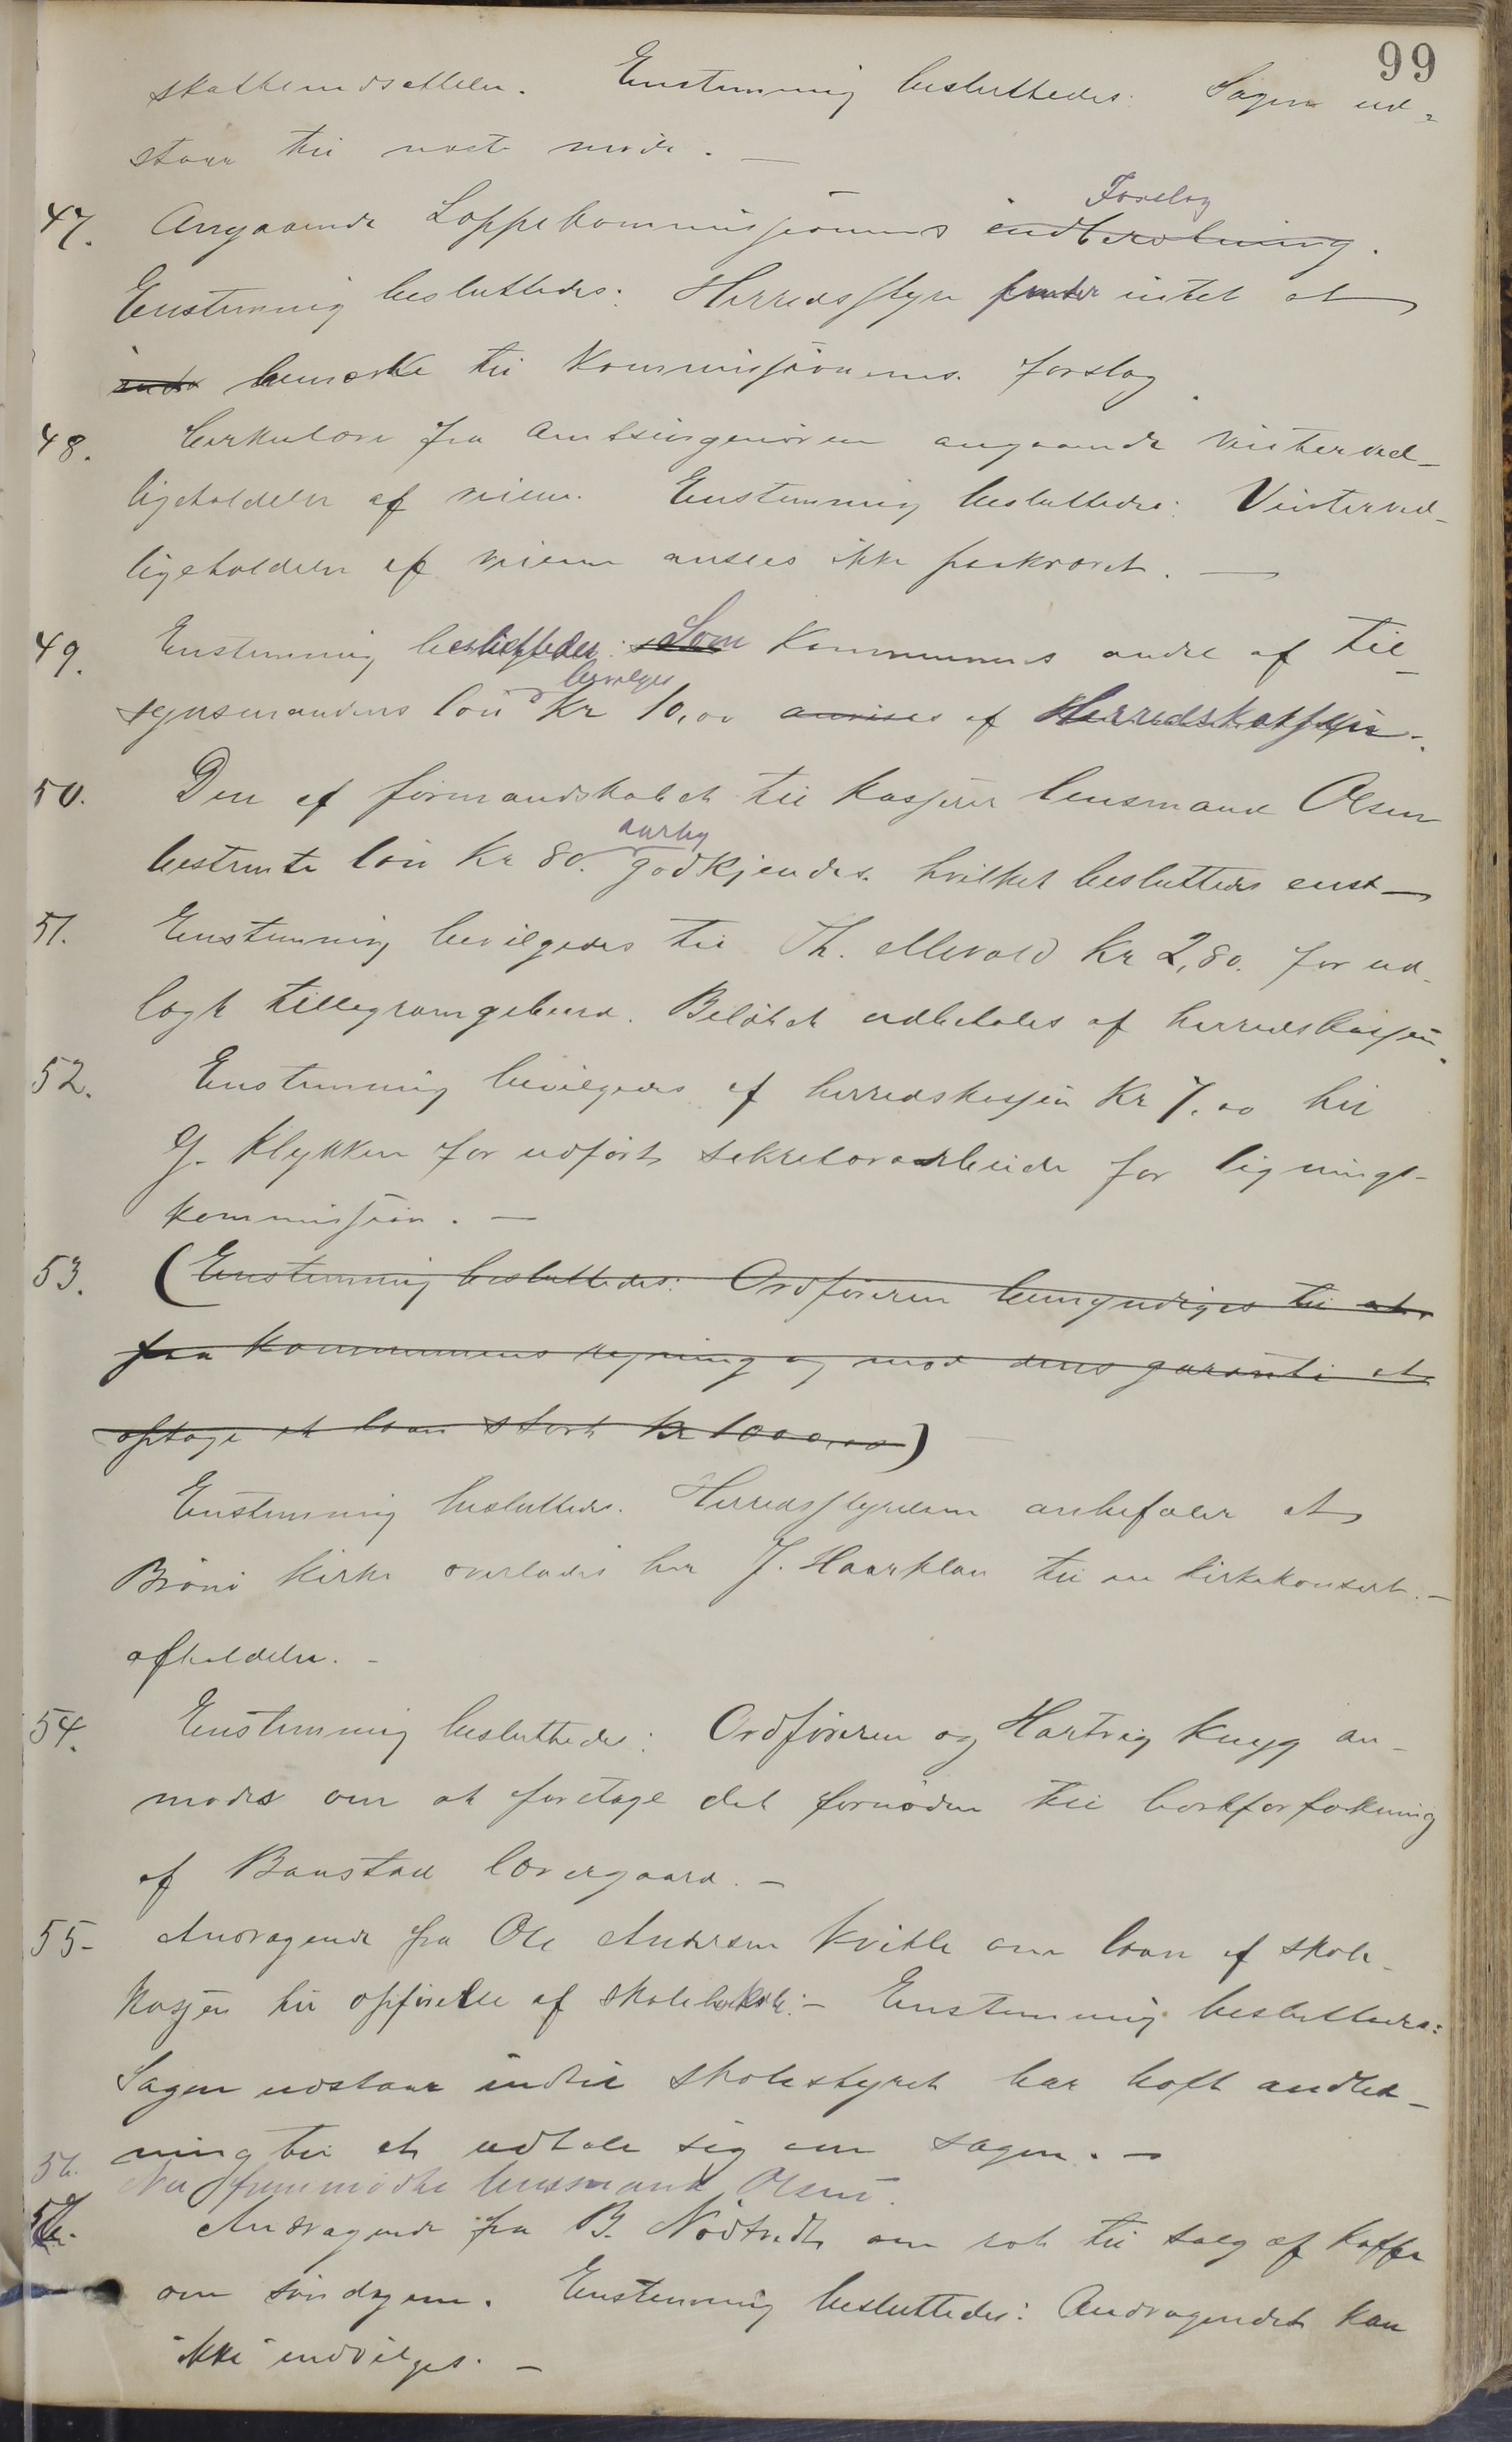 99
skattenedsættelse. Enstemmig besluttedes: Sagen ud-
staar til næste møde. —
Forslag
47. Angaaende Loppekommissionens indberetning.
Enstemmig besluttedes: Herredsstyre finder intet at
bemærke til kommissionens forslag.
48. Cirkulære fra amtsingeniøren angaaende vinterved-
ligeholdelse af veiene. Enstemmig besluttedes: Vinterved-
ligeholdelse af veiene ansees ikke paakrævet. —
49. Enstemmig besluttedes: Som kommunens andel af til-
bevilges
synsmandens løn kr 10,00 anvises af Herredskassen.
50. Den af formandskabet til kasserer lensmand Olsen
aarlig
bestemte løn kr 80. godkjendes hvilket besluttedes enst—
51. Enstemmig bevilgedes til Th. Mevold kr 2,80. for ud-
lagt tillegramgebyr. Beløbet udbetales af herredskassen.
52. Enstemmig bevilgedes af herredskassen kr 7.00 til
J. Klykken for udført sekretærarbeide for lignings-
kommission. —
53. (Enstemmig besluttedes: Ordføreren bemyndiges til at
paa kommunens regning og mod dens garanti at
optage et laan stort kr 1000,00)
Enstemmig besluttedes. Herredsstyrelsen anbefaler at
Brønø kirke overlades hr J. Haarklou til en kirkekonsert.—
afholdelse. -
54. Enstemmig besluttedes: Ordføreren og Hartvig Kvig an-
modes om at foretage det fornødne til bortforpaktning
af Baustad lærergaard. —
55- Andragende fra Ole Andersen Kvitle om laan af skole-
kassen til opførelse af skolelokale:— Enstemmig besluttedes:
Sagen udstaar indtil skolestyret har havt anled-
ning til at udtale sig om sagen. —
56. Nu fremmødte lensmand Olsen.
57. Andragende fra B. Nødtvedt om ret til salg af kaffe
om søndagene. Enstemmig besluttedes: Andragendet kan
ikke indvilges. —